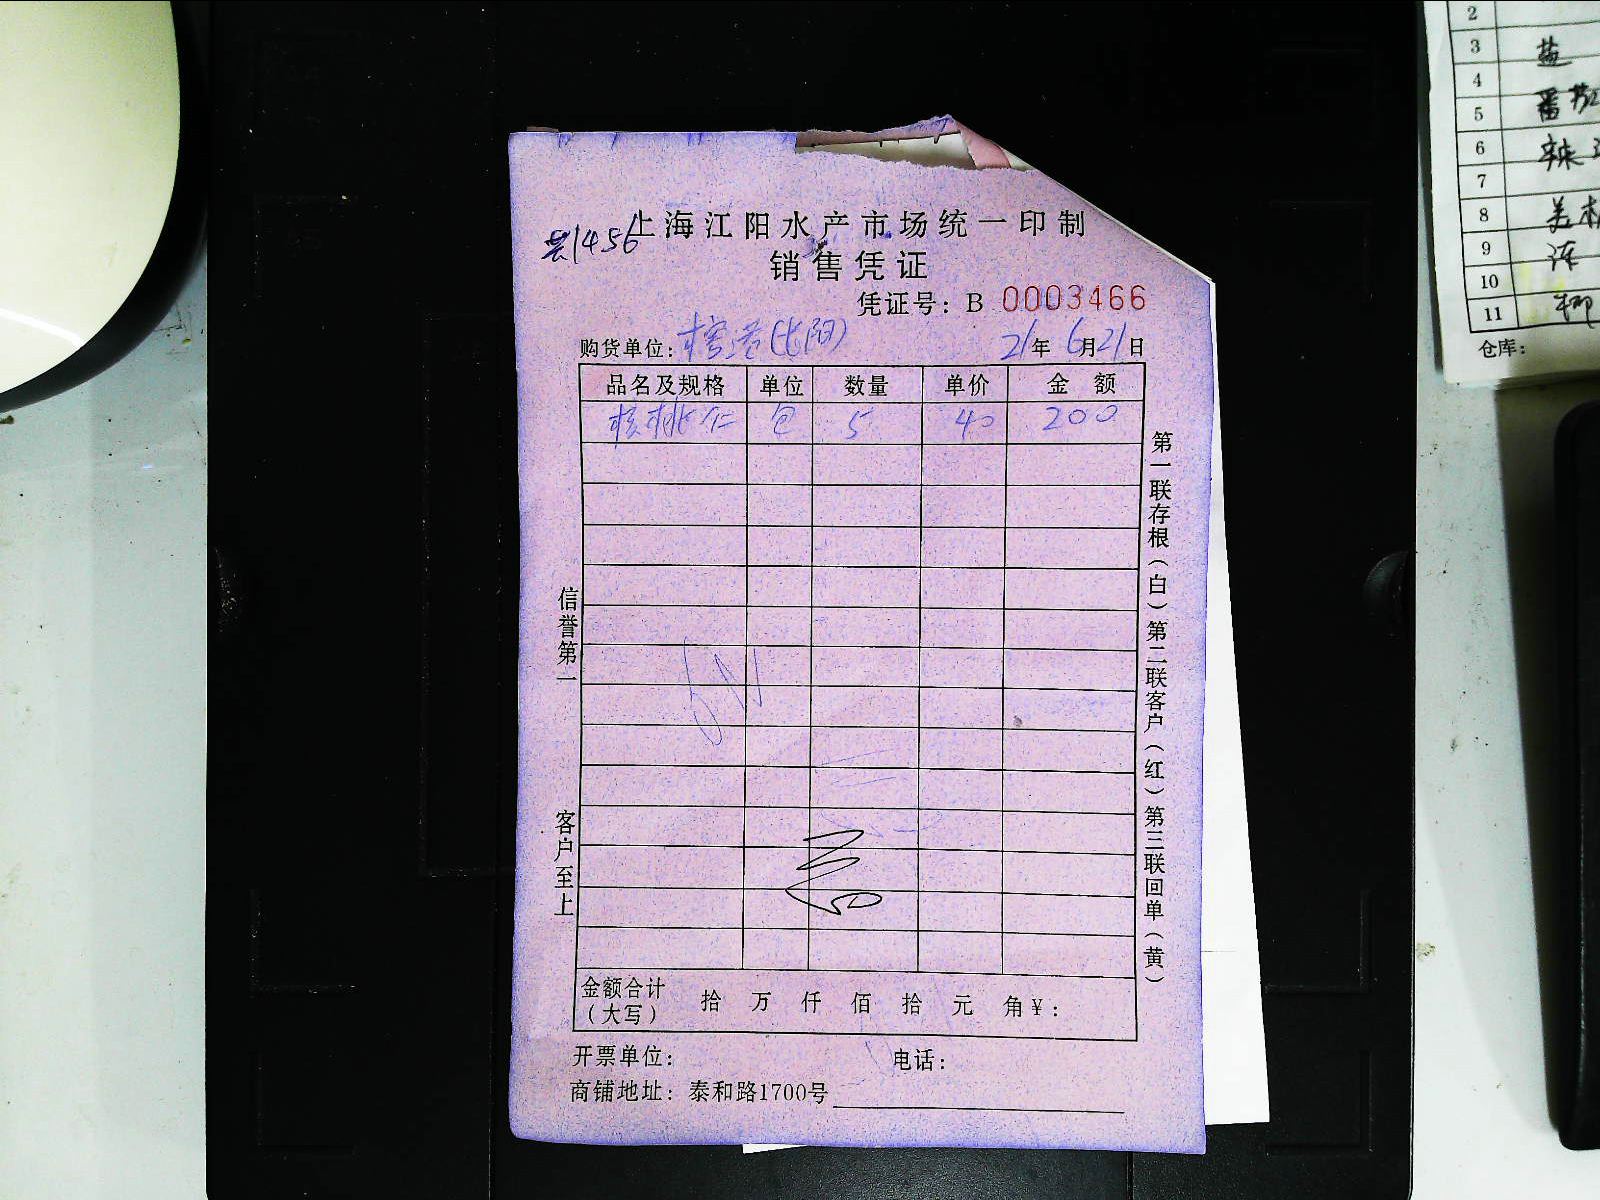 上海江阳水产市场统一印制
共1456
销售凭证
凭证号：B 0003466
购货单位： (沈阳) 21年6月21日
品名及规格 单位 数量 单价 金额
核桃仁 包 5 40 200
第一联存根（白）第二联客户（红）第三联回单（黄）
信誉第一
客户至上
金额合计（大写） 拾 万 仟 佰 拾 元 角 ¥：
开票单位： 电话：
商铺地址：泰和路1700号
2
3 盐
4
5 番茄
6 辣
7
8
9
10
11 柳
仓库：